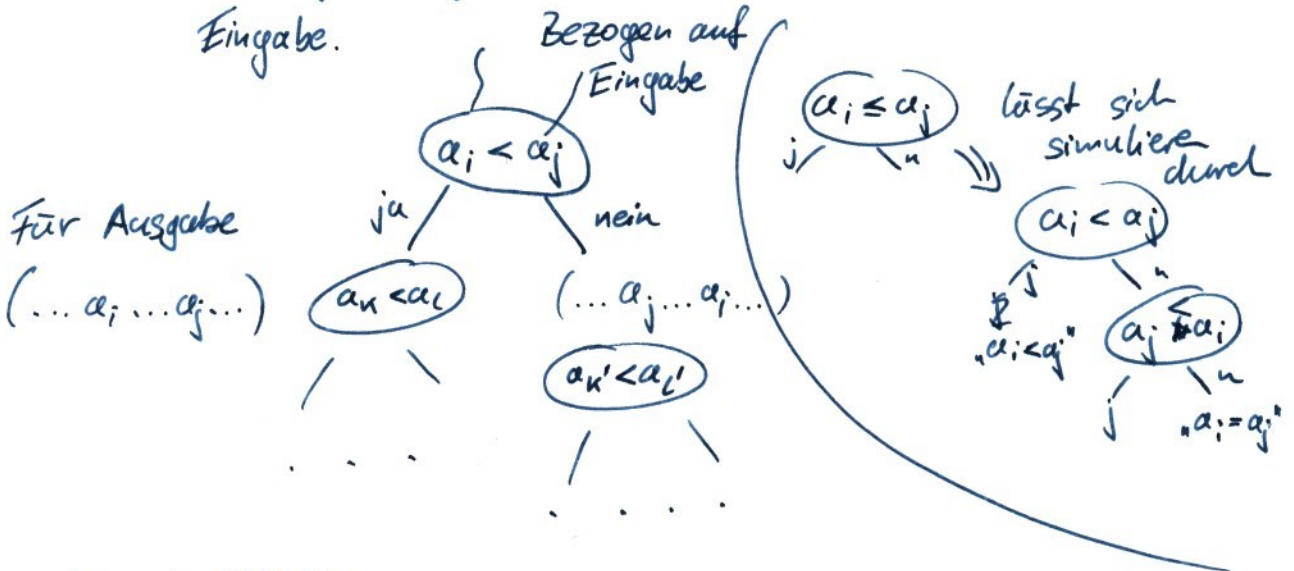 Eingabe.
Bezogen auf
Eingabe
a_i < a_j
ja
nein
Für Ausgabe
(... a_i ... a_j ...)
a_k < a_l
(... a_j ... a_i ...)
a_k' < a_l'
. . .
. . . .
a_i ≤ a_j
j
n
lässt sich
simulieren
durch
a_i < a_j
j
n
„a_i < a_j"
a_j < a_i
j
n
„a_i = a_j"